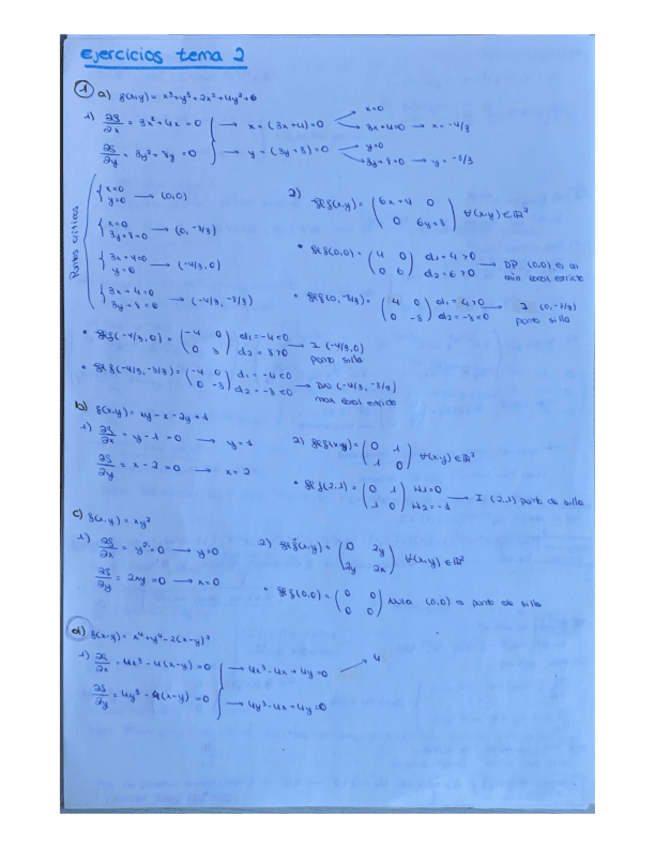 Ejercicios tema 2
① a) f(x,y) = x³+y³+2x²+4y²+6
1) ∂f/∂x = 3x²+4x = 0 → x = (3x+4)=0 → x=0
→ 3x+4=0 → x=-4/3
∂f/∂y = 3y²+8y = 0 → y = (3y+8)=0 → y=0
→ 3y+8=0 → y=-8/3
Puntos críticos
x=0
y=0 → (0,0)
x=0
3y+8=0 → (0,-8/3)
3x+4=0
y=0 → (-4/3,0)
3x+4=0
3y+8=0 → (-4/3,-8/3)
2) Hf(x,y) = (6x+4 0
0 6y+8) ∀(x,y)∈ℝ²
• Hf(0,0) = (4 0 d₁=4>0
0 6) d₂=6>0 → DP (0,0) es un
min local estricto
• Hf(0,-8/3) = (4 0 d₁=4>0
0 -8) d₂=-8<0 → I (0,-8/3)
punto silla
• Hf(-4/3,0) = (-4 0 d₁=-4<0
0 8) d₂=8>0 → I (-4/3,0)
punto silla
• Hf(-4/3,-8/3) = (-4 0 d₁=-4<0
0 -8) d₂=-8<0 → DN (-4/3,-8/3)
max local estricto
b) f(x,y) = xy-x-2y+1
1) ∂f/∂x = y-1 = 0 → y=1
∂f/∂y = x-2 = 0 → x=2
2) Hf(x,y) = (0 1
1 0) ∀(x,y)∈ℝ²
• Hf(2,1) = (0 1 H₁=0
1 0) H₂=-1 → I (2,1) punto de silla
c) f(x,y) = xy²
1) ∂f/∂x = y² = 0 → y=0
∂f/∂y = 2xy = 0 → x=0
2) Hf(x,y) = (0 2y
2y 2x) ∀(x,y)∈ℝ²
• Hf(0,0) = (0 0
0 0) Nula (0,0) es punto de silla
d) f(x,y) = x⁴+y⁴-2(x-y)²
1) ∂f/∂x = 4x³-4(x-y) = 0 → 4x³-4x+4y=0 → 4
∂f/∂y = 4y³-4(x-y) = 0 → 4y³-4x+4y=0